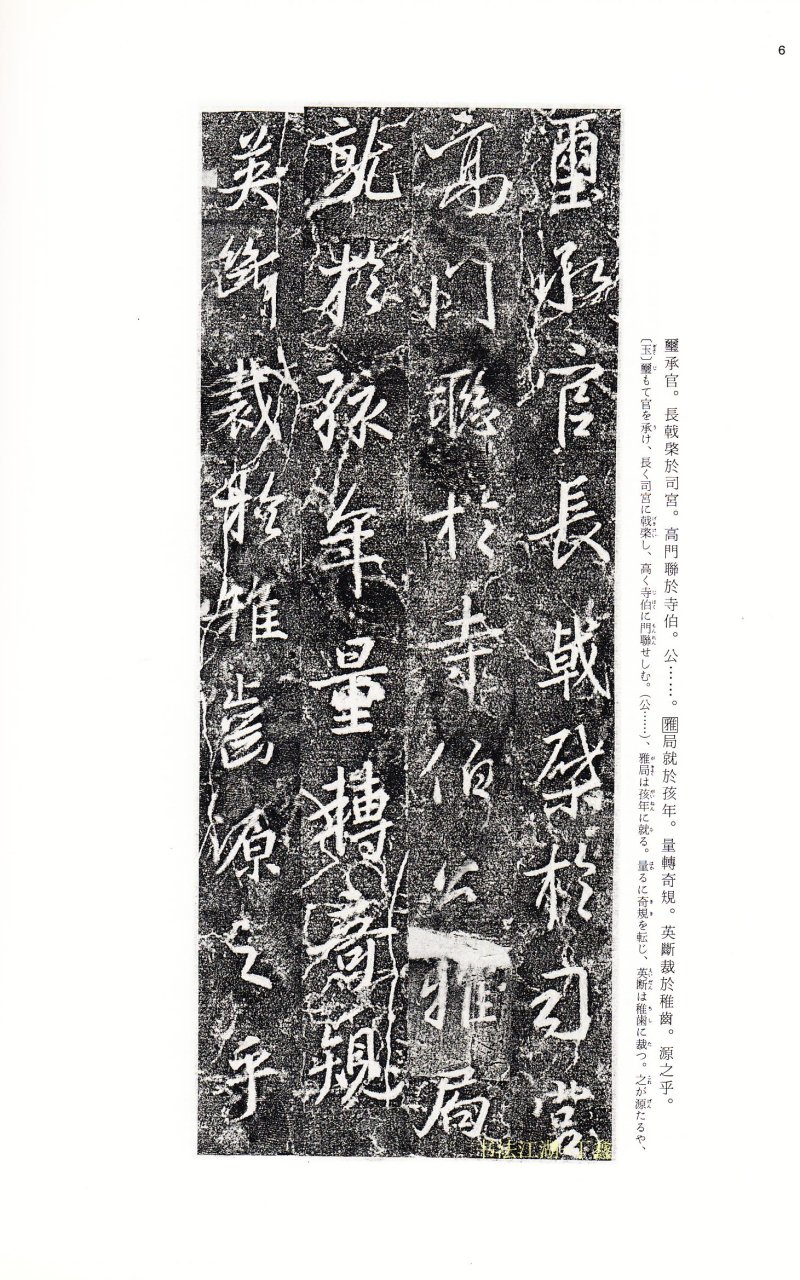 6
璽承官長戟棨於司宮
高門聯於寺伯公雅局
就於孩年量轉奇規
英斷裁於稚齒源之乎
璽承官。長戟棨於司宮。高門聯於寺伯。公……。雅局就於孩年。量轉奇規。英斷裁於稚齒。源之乎。
〔玉〕璽もて官を承け、長く司宮に戟棨し、高く寺伯に門聯せしむ。（公……）、雅局は孩年に就る。量るに奇規を転じ、英断は稚歯に裁つ。之が源たるや、
书法江湖